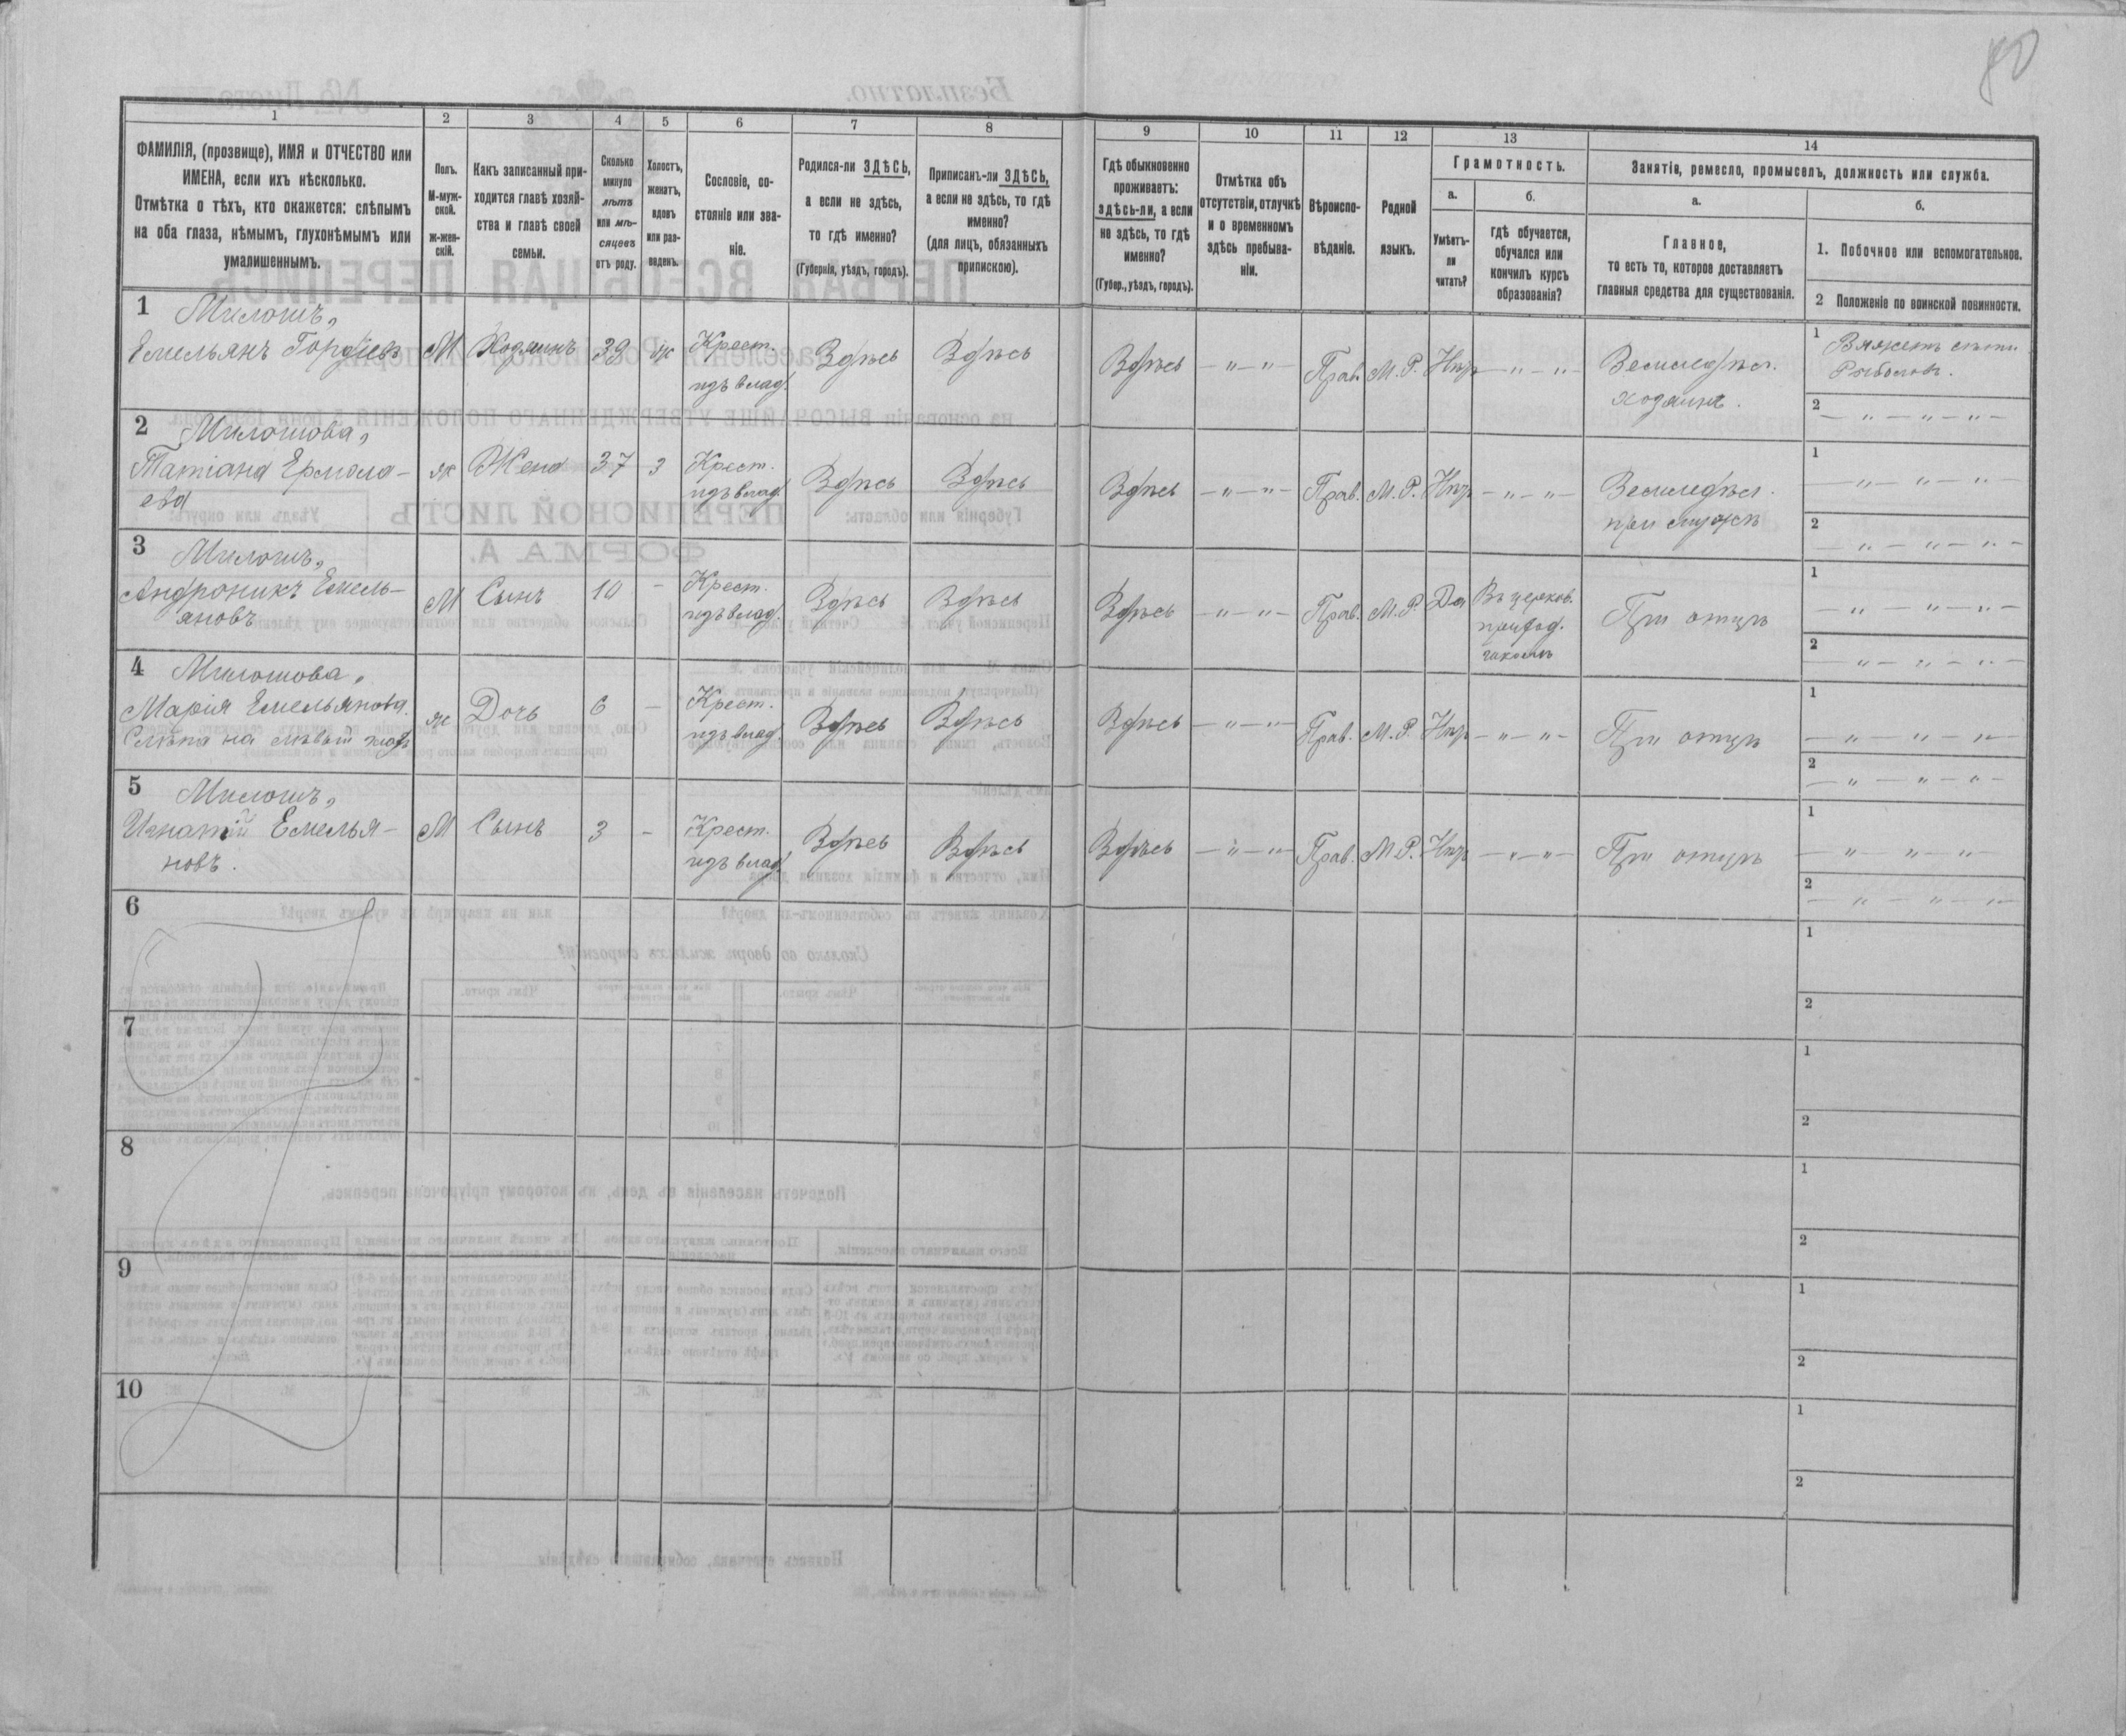 80
1 2 3 4 5 6 7 8 9 10 11 12 13 14
ФАМИЛІЯ, (прозвище), ИМЯ и ОТЧЕСТВО или
ИМЕНА, если ихъ нѣсколько.
Отмѣтка о тѣхъ, кто окажется: слѣпымъ
на оба глаза, нѣмымъ, глухонѣмымъ или
умалишеннымъ.
Полъ.
М-муж-
ской.
ж-жен-
скій.
Какъ записанный при-
ходится главѣ хозяй-
ства и главѣ своей
семьи.
Сколько
минуло
лѣтъ
или мѣ-
сяцевъ
отъ роду.
Холостъ,
женатъ,
вдовъ
или раз-
веденъ.
Сословіе, со-
стояніе или зва-
ніе.
Родился-ли ЗДѢСЬ,
а если не здѣсь,
то гдѣ именно?
(Губернія, уѣздъ, городъ).
Приписанъ-ли ЗДѢСЬ,
а если не здѣсь, то гдѣ
именно?
(для лицъ, обязанныхъ
припискою).
Гдѣ обыкновенно
проживаетъ:
здѣсь-ли, а если
не здѣсь, то гдѣ
именно?
(Губер., уѣздъ, городъ).
Отмѣтка объ
отсутствіи, отлучкѣ
и о временномъ
здѣсь пребыва-
ніи.
Вѣроиспо-
вѣданіе.
Родной
языкъ.
Грамотность.
а.
Умѣетъ-
ли
читать?
б.
гдѣ обучается,
обучался или
кончилъ курсъ
образованія?
Занятіе, ремесло, промыселъ, должность или служба.
а.
Главное,
то есть то, которое доставляетъ
главныя средства для существованія.
б.
1. Побочное или вспомогательное.
2 Положеніе по воинской повинности.
1 Милошъ,
Емельянъ Гордѣевъ М Хозяинъ 39 ж Крест. Здѣсь Здѣсь Здѣсь — " — " — Прав. М.Р. Нѣтъ — " — " — Земледѣл. 1 Вяжетъ сѣти
хозяинъ. Рыболовъ.
2 — " — " — " —
2 Милошова,
Татіана Ермола- ж Жена 37 з Крест. Здѣсь Здѣсь Здѣсь — " — " — Прав. М.Р. Нѣтъ — " — " — Земледѣл. 1 — " — " — " —
ева при мужѣ 2 — " — " — " —
3 Милошъ,
Андроникъ Емель- М Сынъ 10 — Крест. Здѣсь Здѣсь Здѣсь — " — " — Прав. М.Р. Да Въ церков. При отцѣ 1 " — " — " —
яновъ приход.
школѣ 2 — " — " — " —
4 Милошова,
Марія Емельянова. ж Дочь 6 — Крест. Здѣсь Здѣсь Здѣсь — " — " — Прав. М.Р. Нѣтъ — " — " — При отцѣ 1 — " — " — " —
Слѣпа на лѣвый глазъ 2 — " — " — " —
5 Милошъ,
Игнатій Емелья- М Сынъ 3 — Крест. Здѣсь Здѣсь Здѣсь — " — " — Прав. М.Р. Нѣтъ — " — " — При отцѣ 1 — " " — "
новъ. 2 — " — " — " —
6 1
2
7 1
2
8 1
2
9 1
2
10 1
2